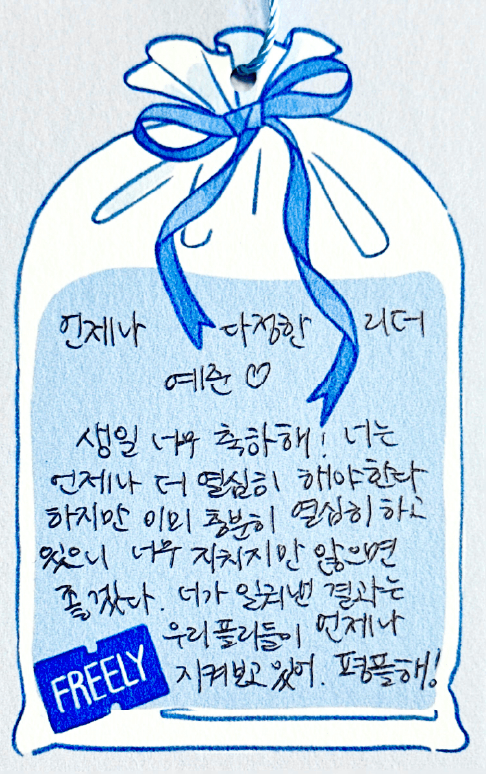 언제나 다정한 리더
예준 ♡
생일 너무 축하해! 너는
언제나 더 열심히 해야한다
하지만 이미 충분히 열심히 하고
있으니 너무 지치지만 않으면
좋겠다. 너가 일궈낸 결과는
우리 플리들이 언제나
지켜보고 있어. 평플해!
FREELY